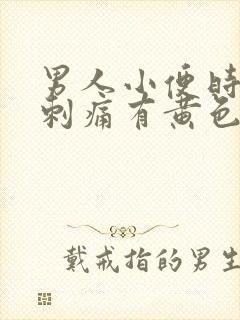 男人小便时
刺痛有黄色
戴戒指的男生